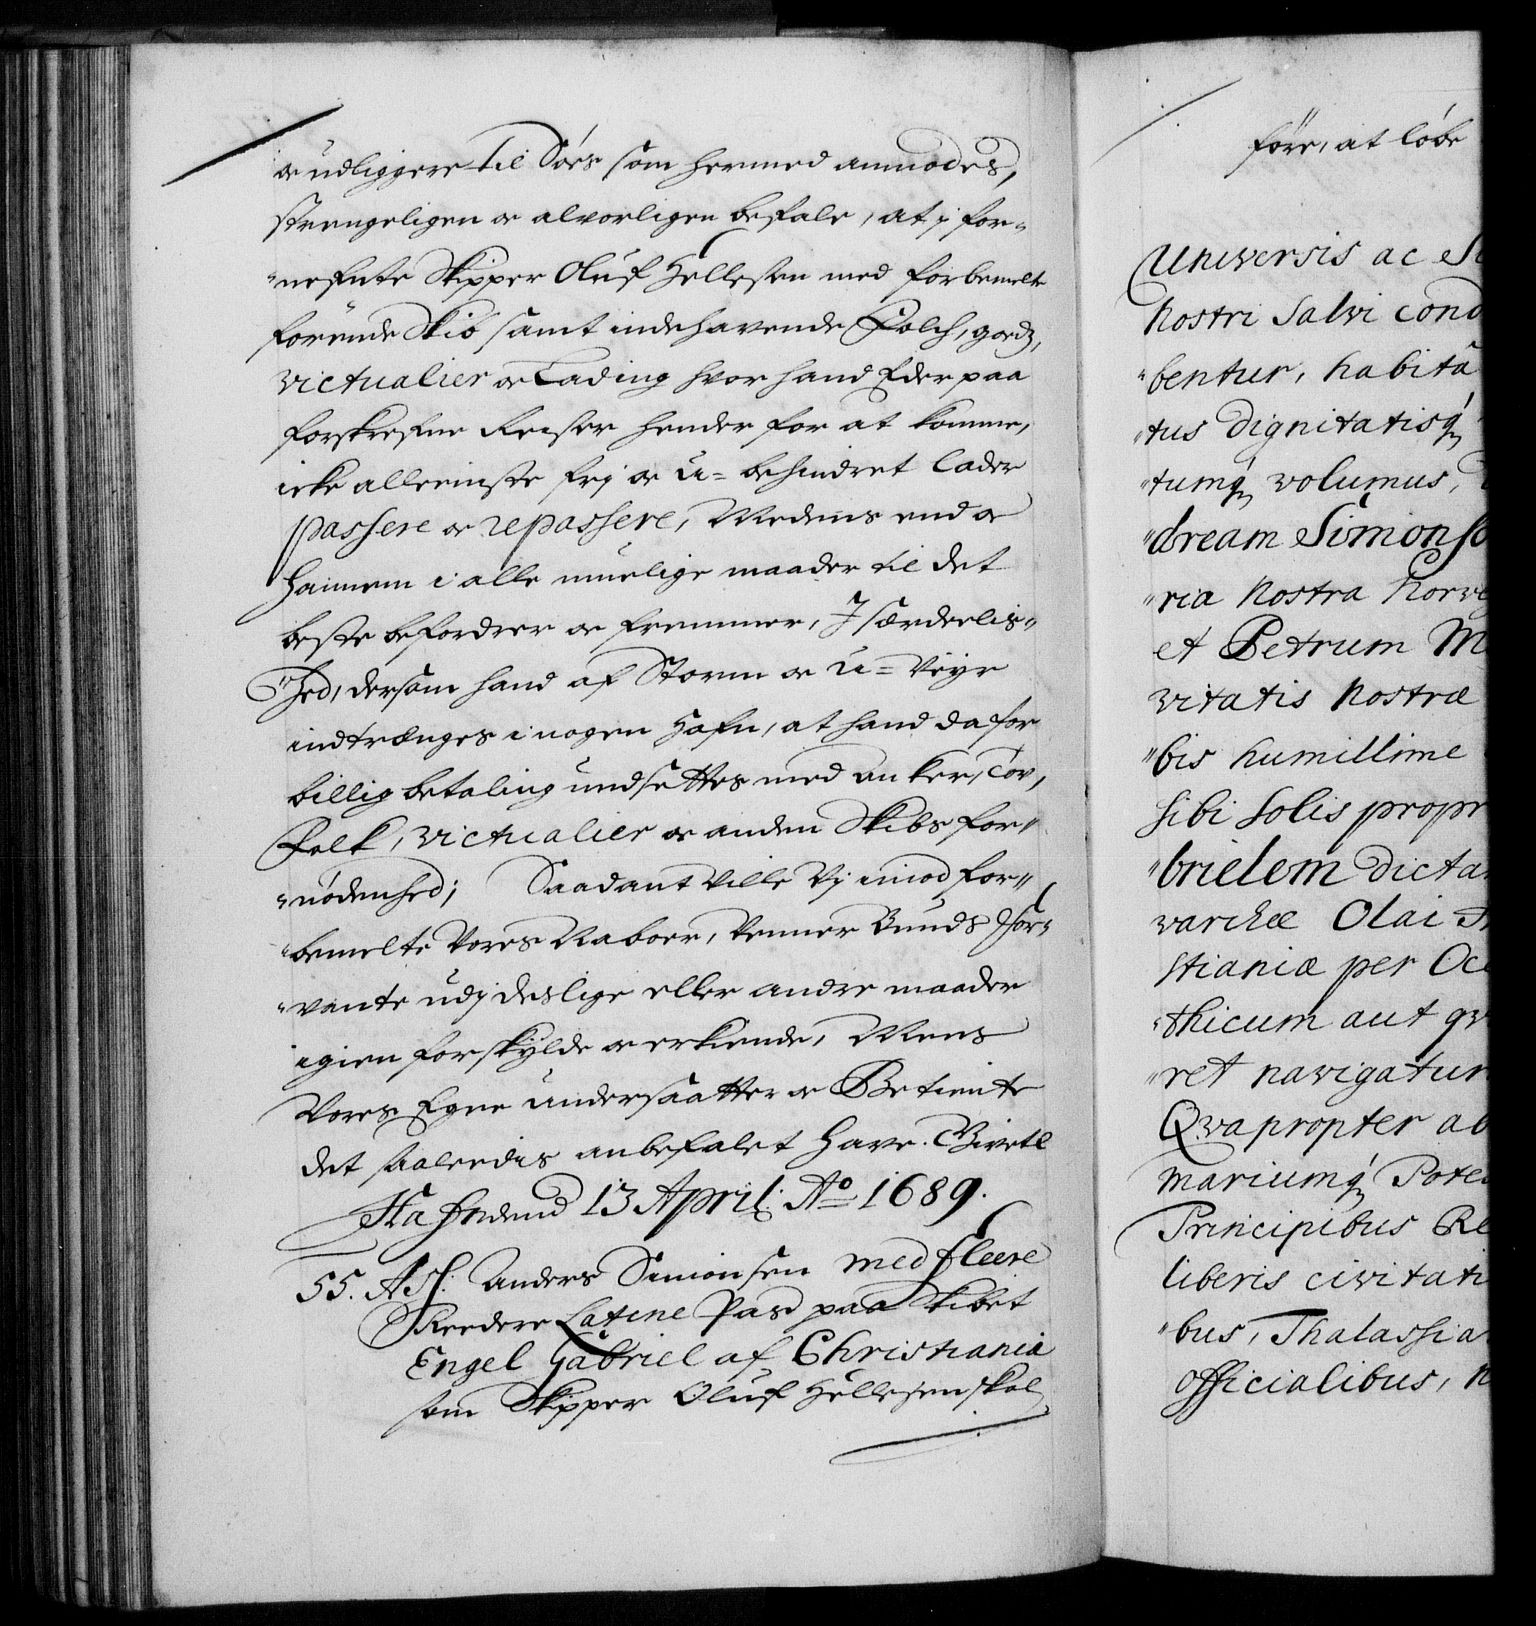 oc udliggere til Söes som hermed anmodes,
strengeligen oc alvorligen befale, at i for-
nefnte Skipper Oluf Hellesen med forbemelte
förende Skib samt indehavende Folch, godz,
victualier oc Lading hvor hand Eder paa
forskrefne Reiser hender for at komme,
icke alleeniste frj oc u-behindret lader
passere oc repassere, Medens end oc
Hannem i alle muelige maader til det
beste befordrer oc fremmer, I særdeelis-
hed, dersom hand af Storm oc u-Veyr
indtrænges i nogen Hafn, at hand da for
billig betaling undsettes med Ancker, Tov,
Folk, victualier oc anden Skibs for-
nödenhed; Saadant ville Vj imod for-
bemelte Vores Naboer, Venner Bunds For-
vante udj deslige eller andre maader
igien forskylde oc erkiende, Mens
Vores Egne undersaatter oc Betiente
det saaledis anbefalet have. Givet
Hafn 13 April: Ao 1689.
55. Anders Simonsen med fleere
Reedere Latine Pas paa Skibet
Engel Gabriel af Christiania
som Skipper Oluf Hellesen skal
före, at löbe
Universis ac
nostri Salvi cond
bentur, habita
tus dignitatisq
tumq volumus,
dream Simonso
ria Nostra Norve
et Petrum M
vitatis Nostræ
bis humillime
sibi solis propr
brielem dicta
varchæ Olai
stianiæ per Oce
thicum aut qv
ret navigatur
Qvapropter ab
mariumq Pote
Principibus Re
liberis civitati
bus, Thalassia
officialibus, n